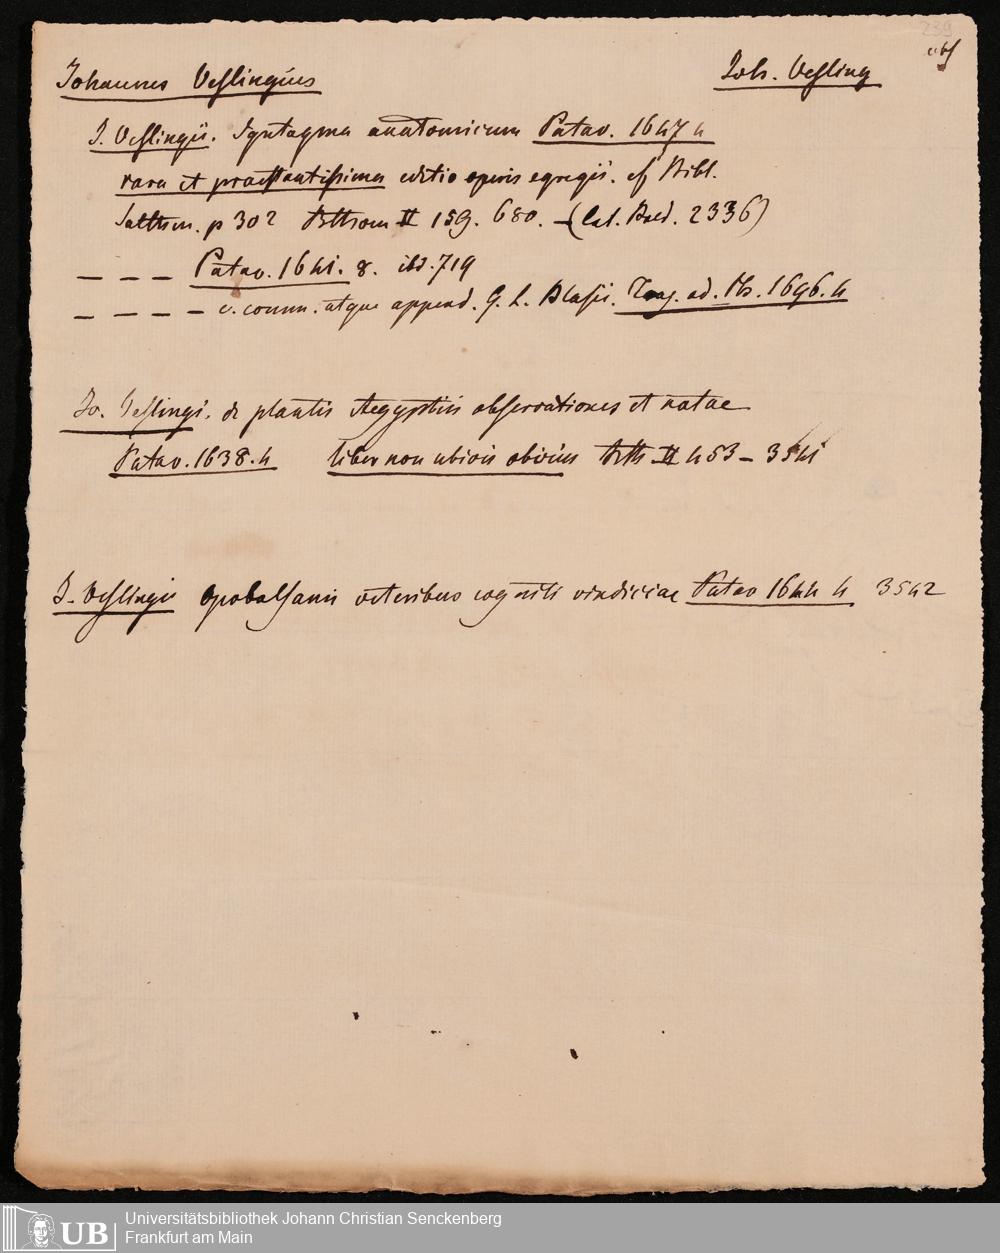 239
Johannes Veslingius
Joh. Vesling
J. Veslingii. Syntagma anatomicum Patav. 1647 4
rara et praestantissima editio operis egregii. cf Bibl.
p 302 II 159. 680. – (Cat. Bald. 2336)
– – – Patav. 1641. 8. ibd. 719
– – – – c. comm. atque append. G. L. Blasii. Traj. ad. Rh. 1696. 4
Jo. Veslingi. de plantis Aegyptiis observationes et notae
Patav. 1638. 4 liber non ubivis obvius II 453 – 3541
J. Veslingii Opobalsami veteribus cogniti vindiciae Patav 1644 4 3542
UB Universitätsbibliothek Johann Christian Senckenberg
Frankfurt am Main